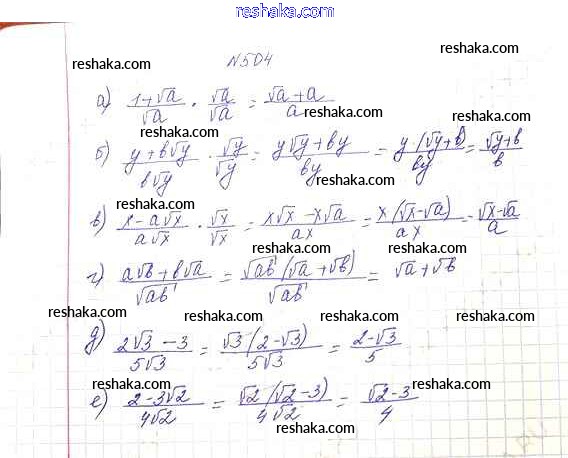 reshaka.com
reshaka.com №504 reshaka.com
а) (1+√a)/√a · √a/√a = (√a+a)/a reshaka.com
reshaka.com reshaka.com
б) (y+b√y)/(b√y) · √y/√y = (y√y+by)/(by) = (y·(√y+b))/(by) = (√y+b)/b
reshaka.com reshaka.com
в) (x-a√x)/(a√x) · √x/√x = (x√x-x√a)/(ax) = (x(√x-√a))/(ax) = (√x-√a)/a
reshaka.com reshaka.com
г) (a√b+b√a)/√ab = (√ab(√a+√b))/√ab = √a+√b
reshaka.com reshaka.com reshaka.com
д) (2√3-3)/(5√3) = (√3(2-√3))/(5√3) = (2-√3)/5
reshaka.com reshaka.com
е) (2-3√2)/(4√2) = (√2(√2-3))/(4√2) = (√2-3)/4
reshaka.com reshaka.com
reshaka.com